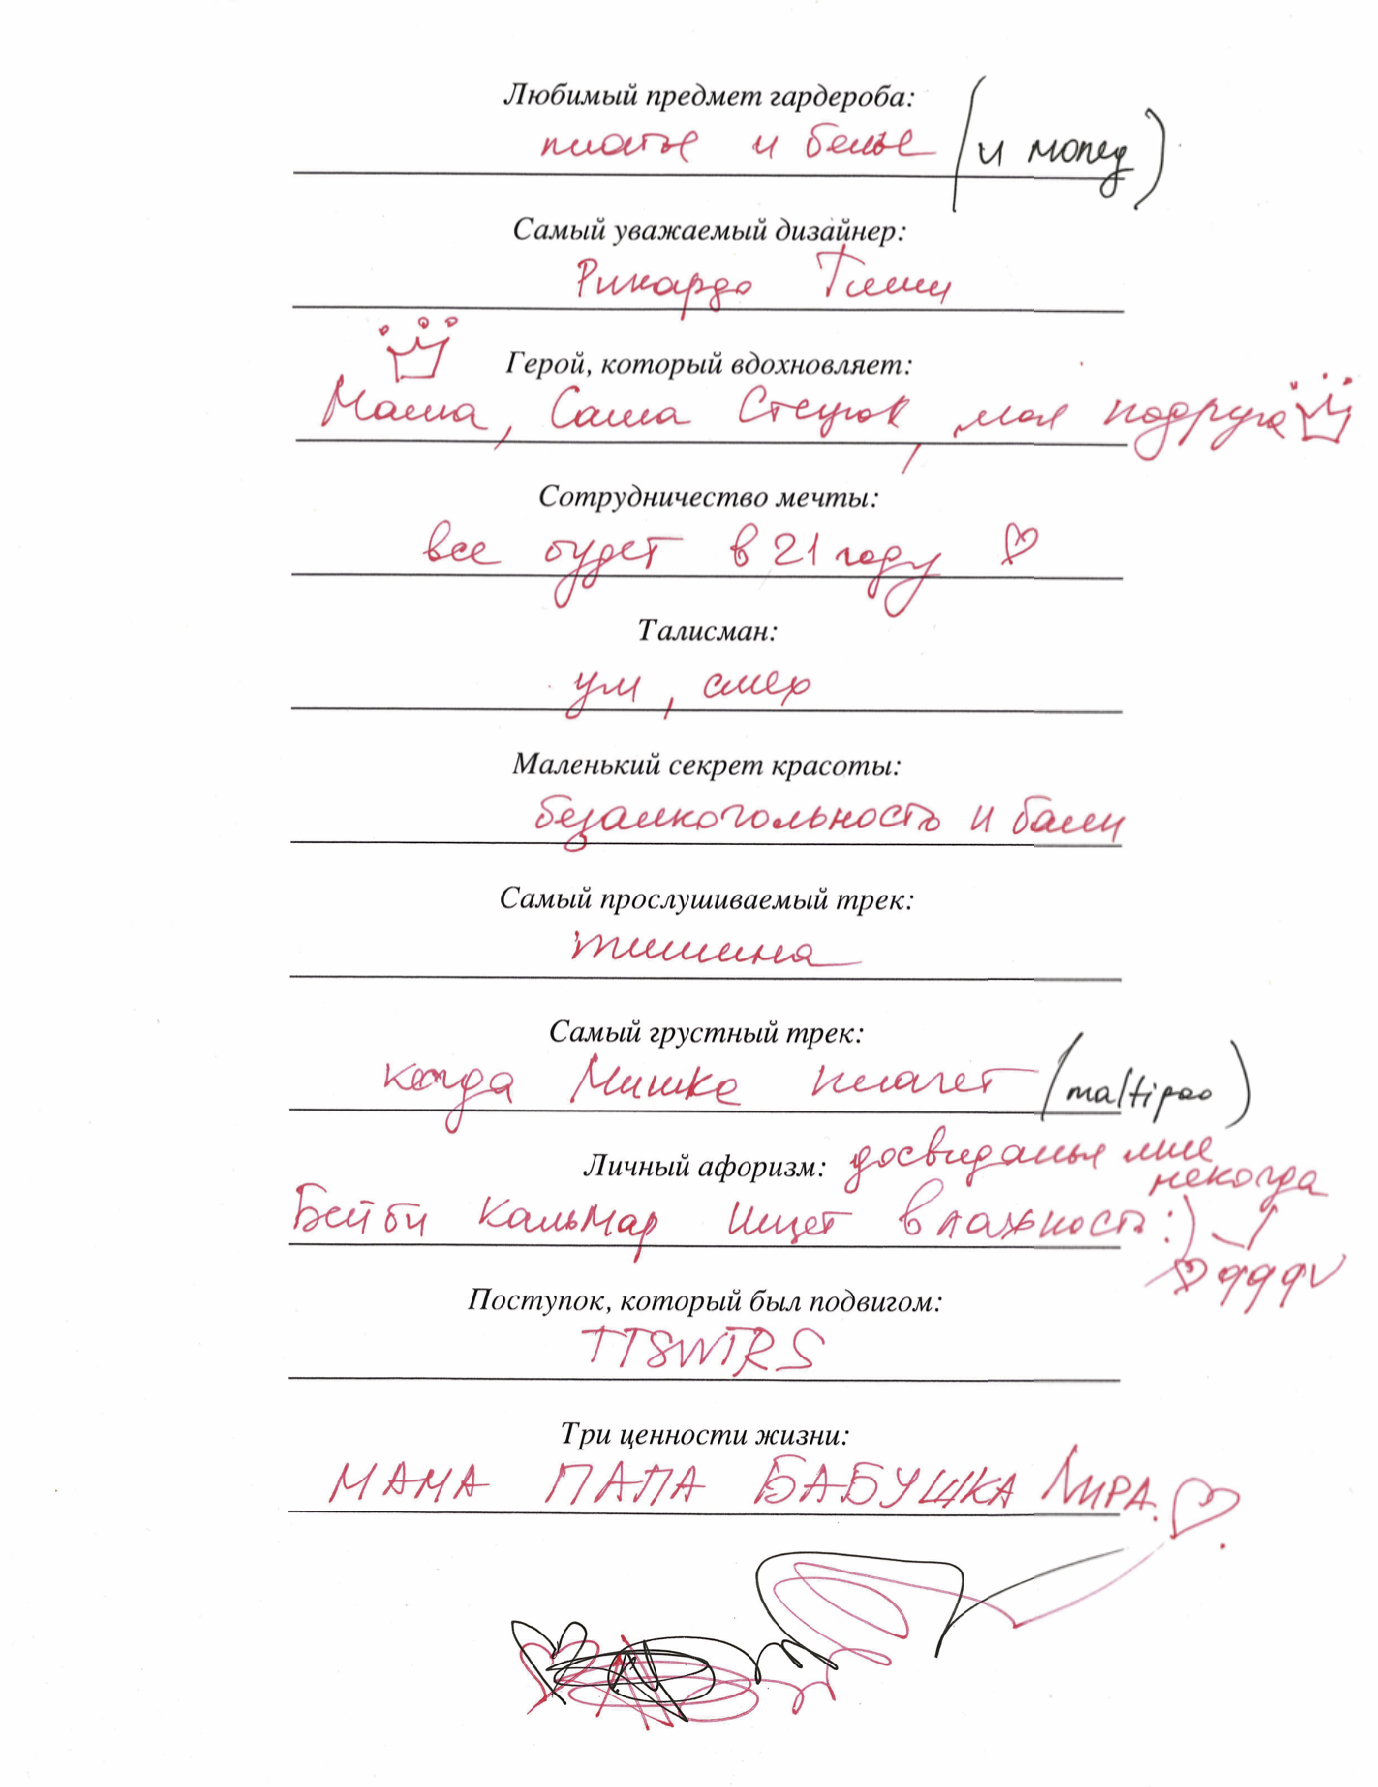 Любимый предмет гардероба:
платье и белье (и мопед)
Самый уважаемый дизайнер:
Рикардо Тиши
Герой, который вдохновляет:
Маша, Саша Стецюк, моя подруга
Сотрудничество мечты:
все будет в 21 году
Талисман:
ум, смех
Маленький секрет красоты:
безалкогольность и бани
Самый прослушиваемый трек:
тишина
Самый грустный трек:
когда Мишка плачет (maltipoo)
Личный афоризм: досвиданья мне
некогда
Бейби Кальмар ищет влажность :)
Поступок, который был подвигом:
TTSWTRS
Три ценности жизни:
МАМА ПАПА БАБУШКА ЛИРА.